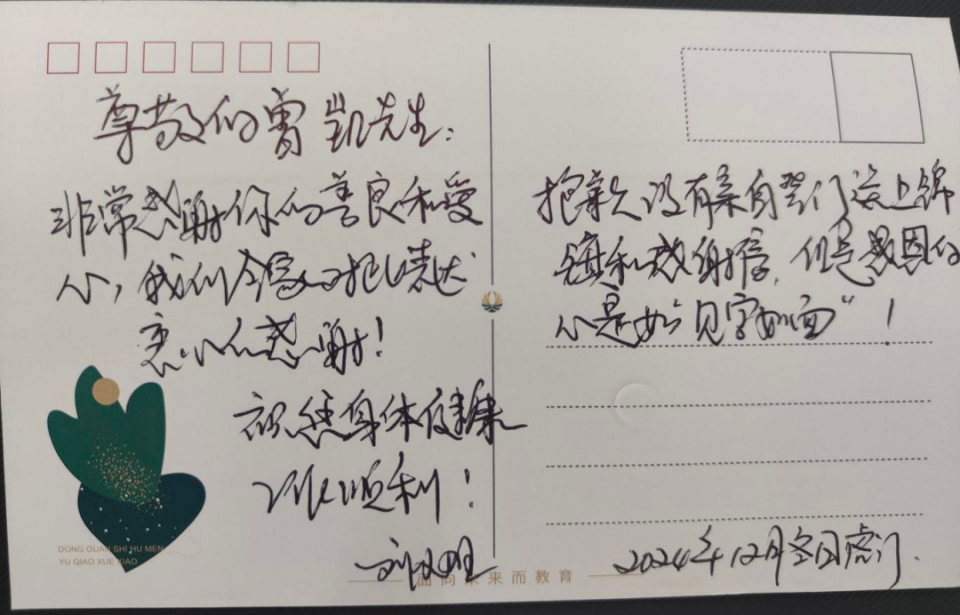 尊敬的曾凯先生：
非常感谢你的善良和爱
心，我们全家对此表达
衷心的感谢！
祝您身体健康
顺利！
DONG GUAN SHI HU MEN
YU QIAO XUE XIAO
抱歉没有亲自登门送上锦
旗和感谢信，但是感恩的
心是如“见字如面”！
2024年12月冬日虎门.
面向未来而教育